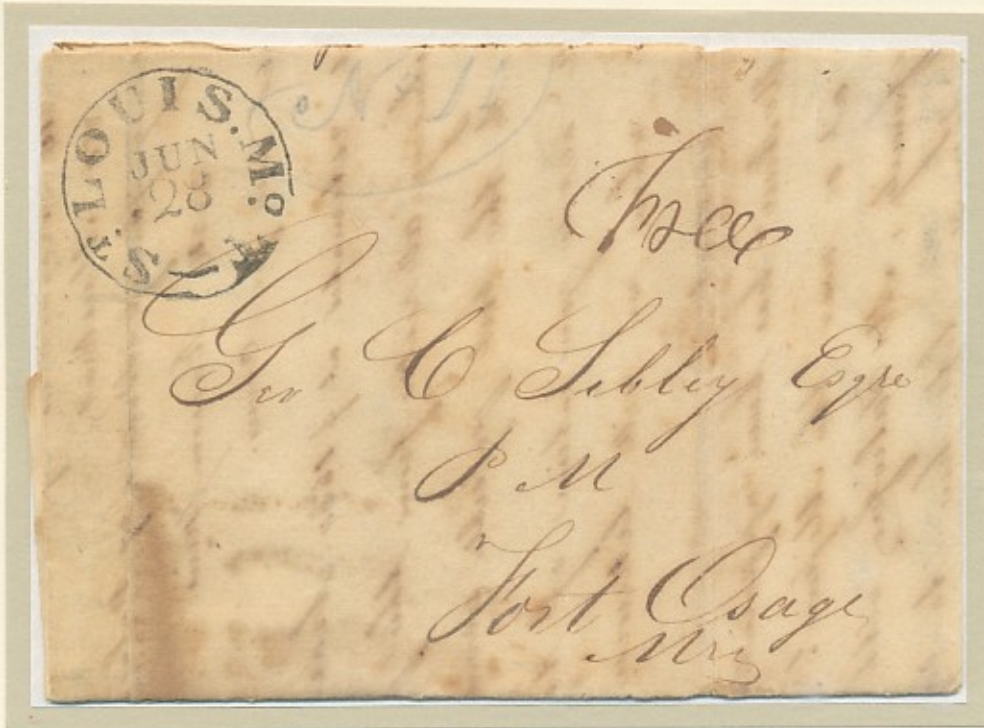 ST. LOUIS. Mo.
JUN
28
Free
Geo C Sibley Esqre
P M
Fort Osage